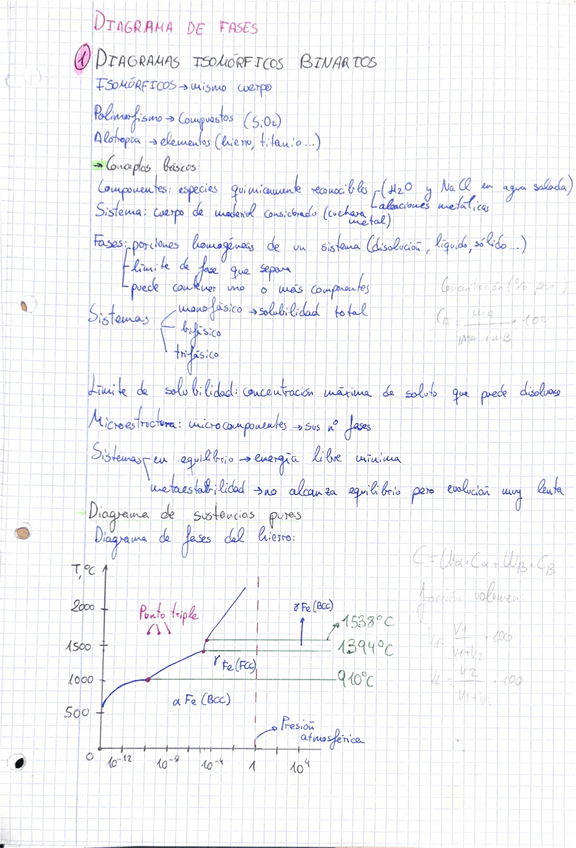 DIAGRAMA DE FASES
1 DIAGRAMAS ISOMÓRFICOS BINARIOS
ISOMÓRFICOS → mismo cuerpo
Polimorfismo → Compuestos (SiO2)
Alotropía → elementos (hierro, titanio...)
→ Conceptos básicos:
Componentes: especies químicamente reconocibles (H2O y NaCl en agua salada)
aleaciones metálicas
Sistema: cuerpo de material considerado (cuchara metal)
Fases: porciones homogéneas de un sistema (disolución, líquido, sólido...)
límite de fase que separa
puede contener uno o más componentes
Sistemas
monofásico → solubilidad total
bifásico
trifásico
Límite de solubilidad: concentración máxima de soluto que puede disolverse
Microestructura: microcomponentes → sus nº fases
Sistemas en equilibrio → energía libre mínima
metaestabilidad → no alcanza equilibrio pero evolución muy lenta
Diagrama de sustancias puras
Diagrama de fases del hierro:
T, ºC
2000
1500
1000
500
0
10-12
10-8
10-4
1
104
Punto triple
γ Fe (BCC)
1538ºC
1394ºC
910ºC
γ Fe (FCC)
α Fe (BCC)
Presión atmosférica